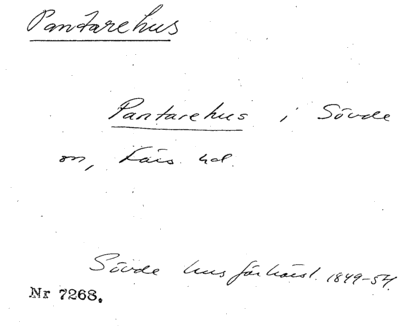 Pantarehus
Pantarehus i Sövde
sn, Färs hd.
Sövde husförhörsl. 1849-54.
Nr 7268.